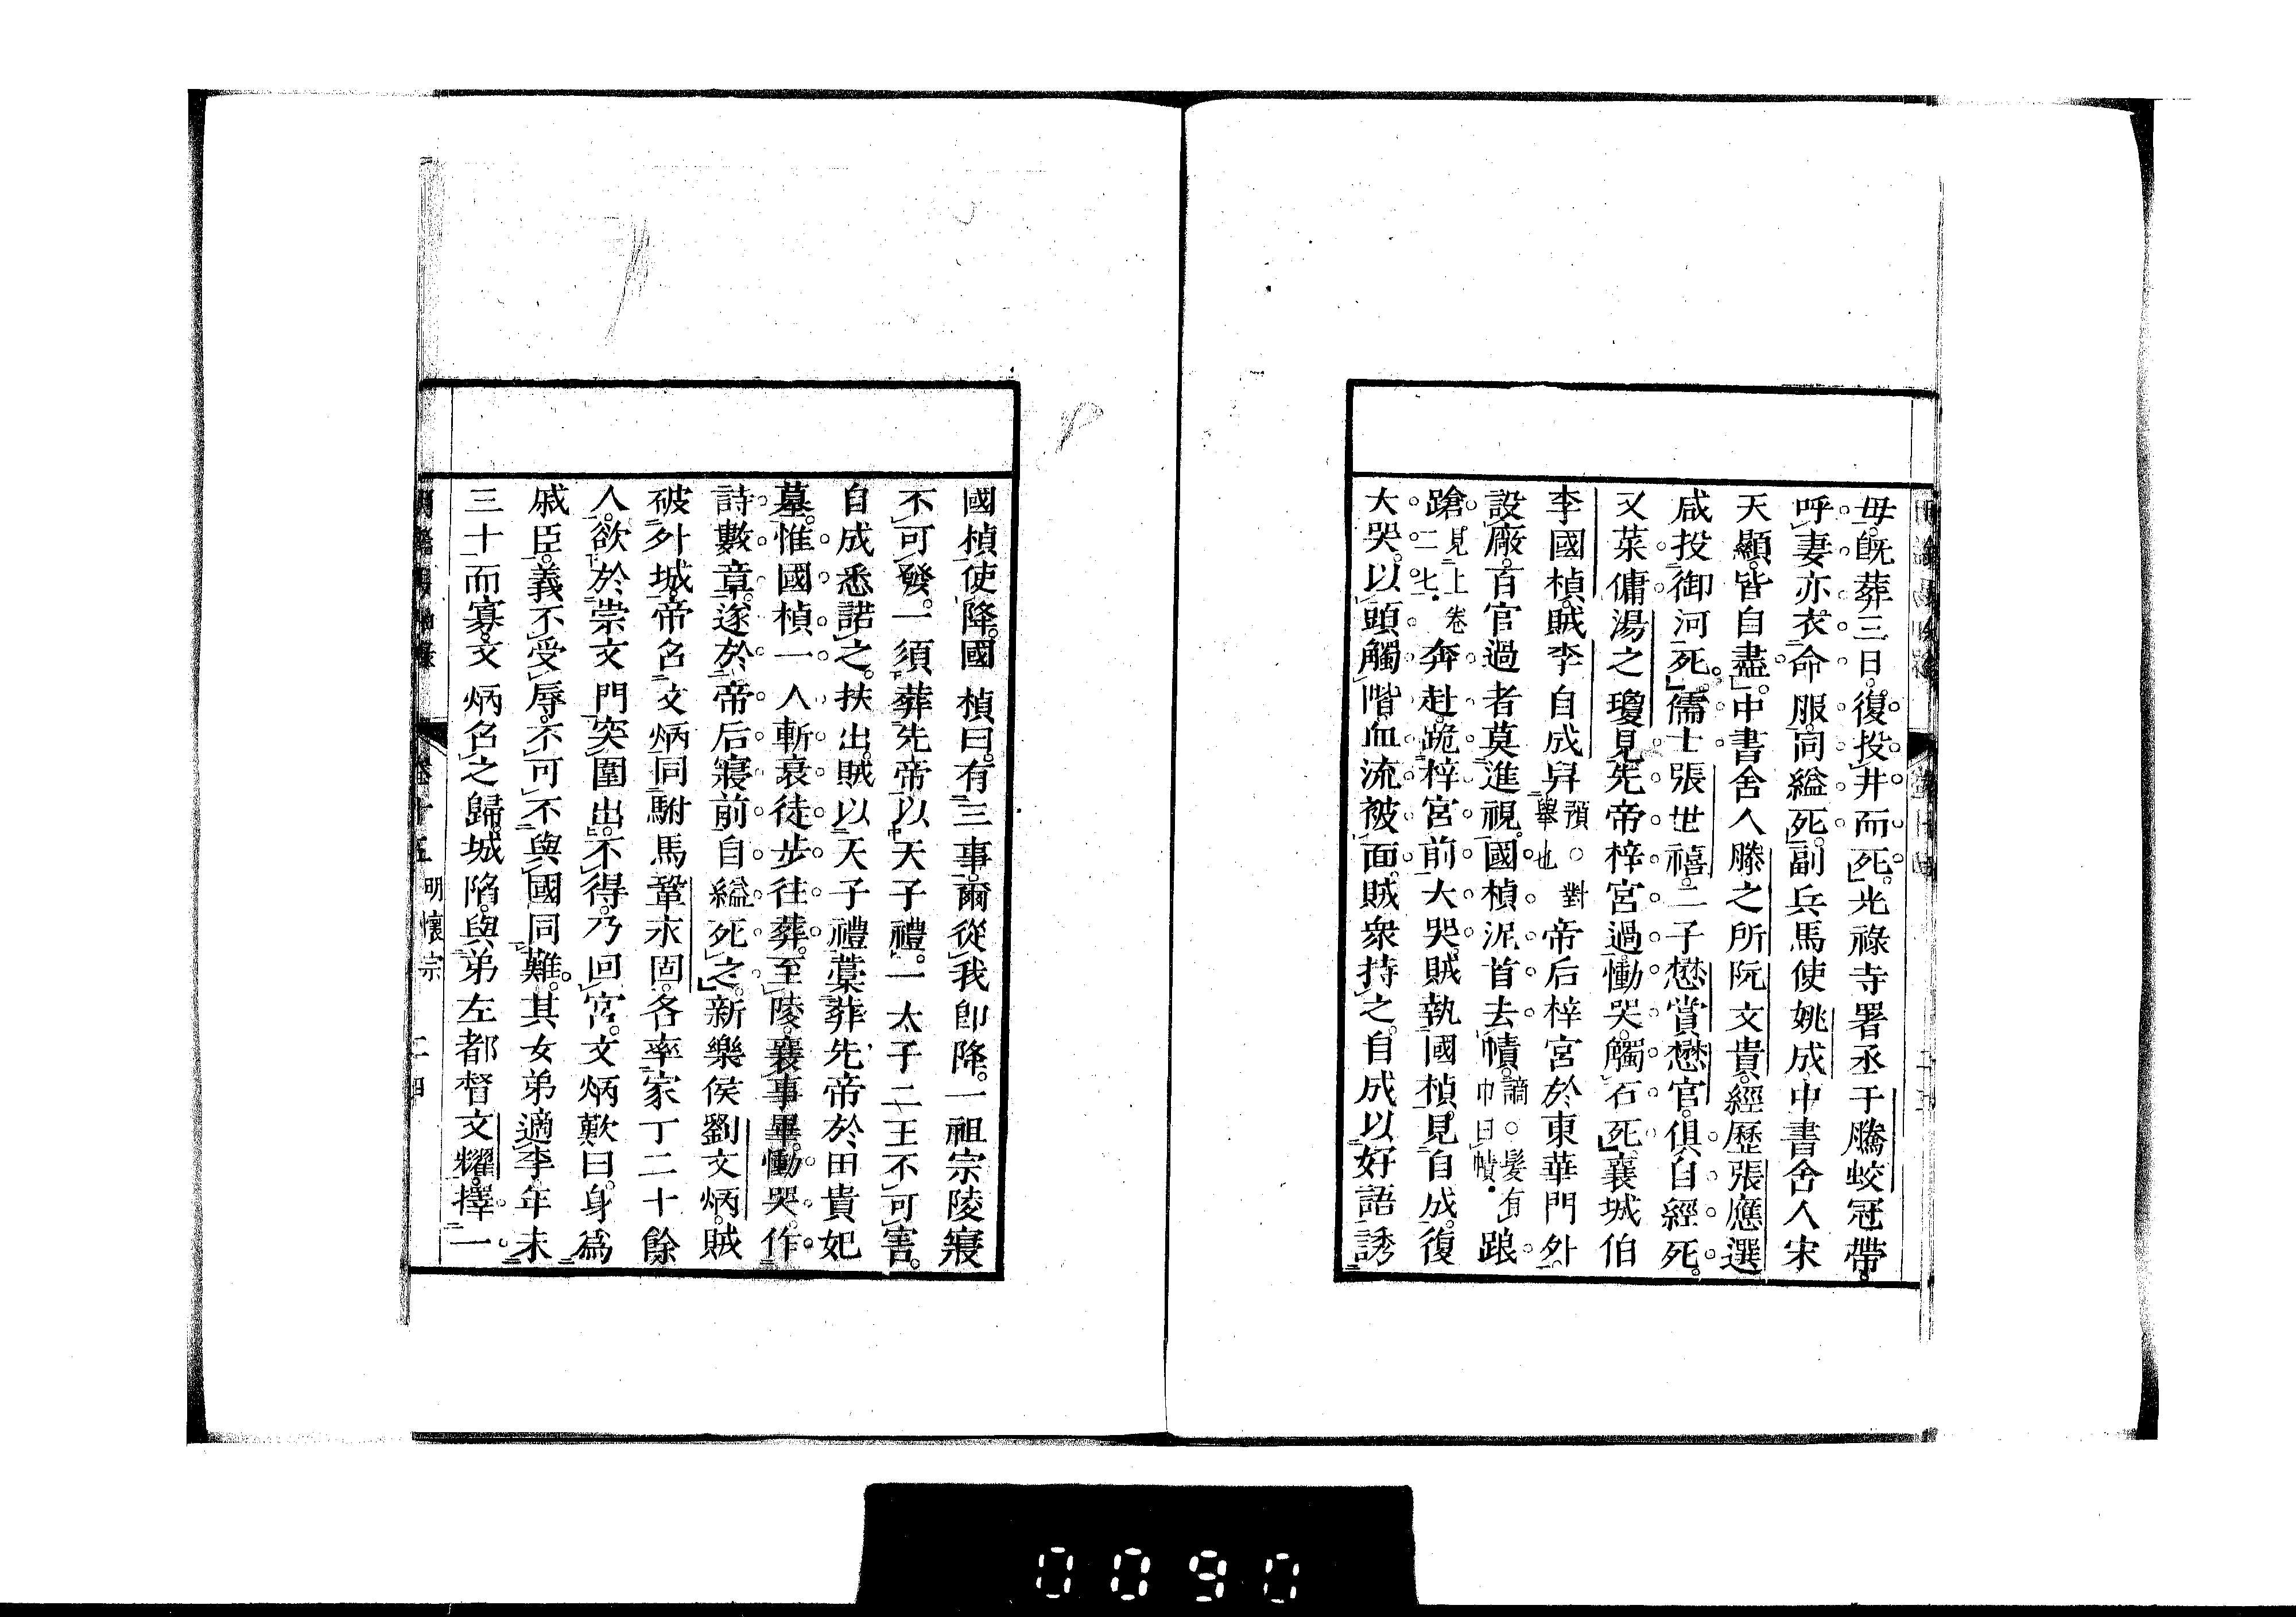 母。既葬三日。復投井而死。光祿寺署丞于騰蛟冠帶。
呼妻亦衣命服。同縊死。副兵馬使姚成。中書舍人宋
天顯。皆自盡。中書舍人滕之所阮文貴。經歷張應選
咸投御河死。儒士張世禧。二子懋賞懋官。俱自經死。
又菜傭湯之瓊見先帝梓宮過。慟哭。觸石死。襄城伯
李國楨。賊李自成舁預○對舉也帝后梓宮於東華門外。
設廠。百官過者莫進視。國楨泥首去幘。謫○髮有巾曰幘踉
蹌見上卷二七奔赴。跪梓宮前大哭。賊執國楨見自成。復
大哭。以頭觸階。血流被面。賊衆持之。自成以好語誘
國楨使降。國楨曰。有三事。爾從我卽降。一祖宗陵寢
不可發。一須葬先帝以天子禮。一太子二王不可害。
自成悉諾之。扶出。賊以天子禮藁葬先帝於田貴妃
墓。惟國楨一人斬衰徒步往葬。至陵。襄事畢。慟哭。作
詩數章。遂於帝后寢前自縊死之。新樂侯劉文炳。賊
破外城。帝召文炳同駙馬鞏永固。各率家丁二十餘
人。欲於崇文門突圍出。不得。乃回宮。文炳歎曰。身爲
戚臣。義不受辱。不可不與國同難。其女弟適李年未
三十而寡。文炳召之歸。城陷。與弟左都督文耀。擇一
卷十五 明懷宗 二四
0090